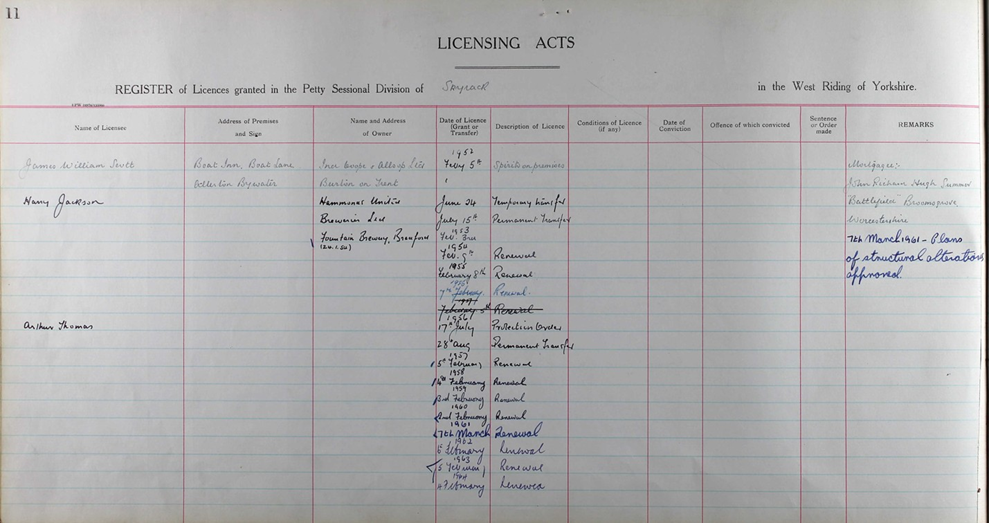 11
LICENSING ACTS
REGISTER of Licences granted in the Petty Sessional Division of Skyrack in the West Riding of Yorkshire.
Name of Licensee
Address of Premises and Sign
Name and Address of Owner
Date of Licence (Grant or Transfer)
Description of Licence
Conditions of Licence (if any)
Date of Conviction
Offence of which convicted
Sentence or Order made
REMARKS
1952
James William Scott Boat Inn, Boat Lane Feby 5th Spirits on premises Mortgagee:-
Allerton Bywater Burton on Trent John Hugh
Harry Jackson Hammonds United June 24 Temporary transfer Battlefield Bromsgrove
Breweries Ltd July 15th Permanent Transfer Worcestershire
1953
Fountain Brewery, Bradford Feb. 3rd 7th March 1961 - Plans
1954
Feb. 9th Renewal of structural alterations
1955
February 8th Renewal approved.
7th February Renewal
February Renewal
1956
Arthur Thomas 17th July Protection Order
28th Aug Permanent Transfer
1957
5th February Renewal
1958
4th February Renewal
1959
3rd February Renewal
1960
2nd February Renewal
1961
7th March Renewal
1962
6 February Renewal
1963
5 February Renewal
1964
4 February Renewal